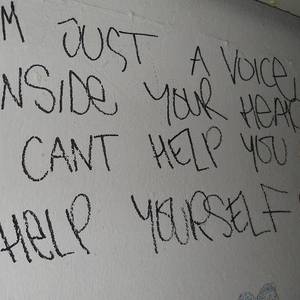 M JUST A VOICE
NSIDE YOUR HEA
CANT HELP YOU
HELP YOURSELF